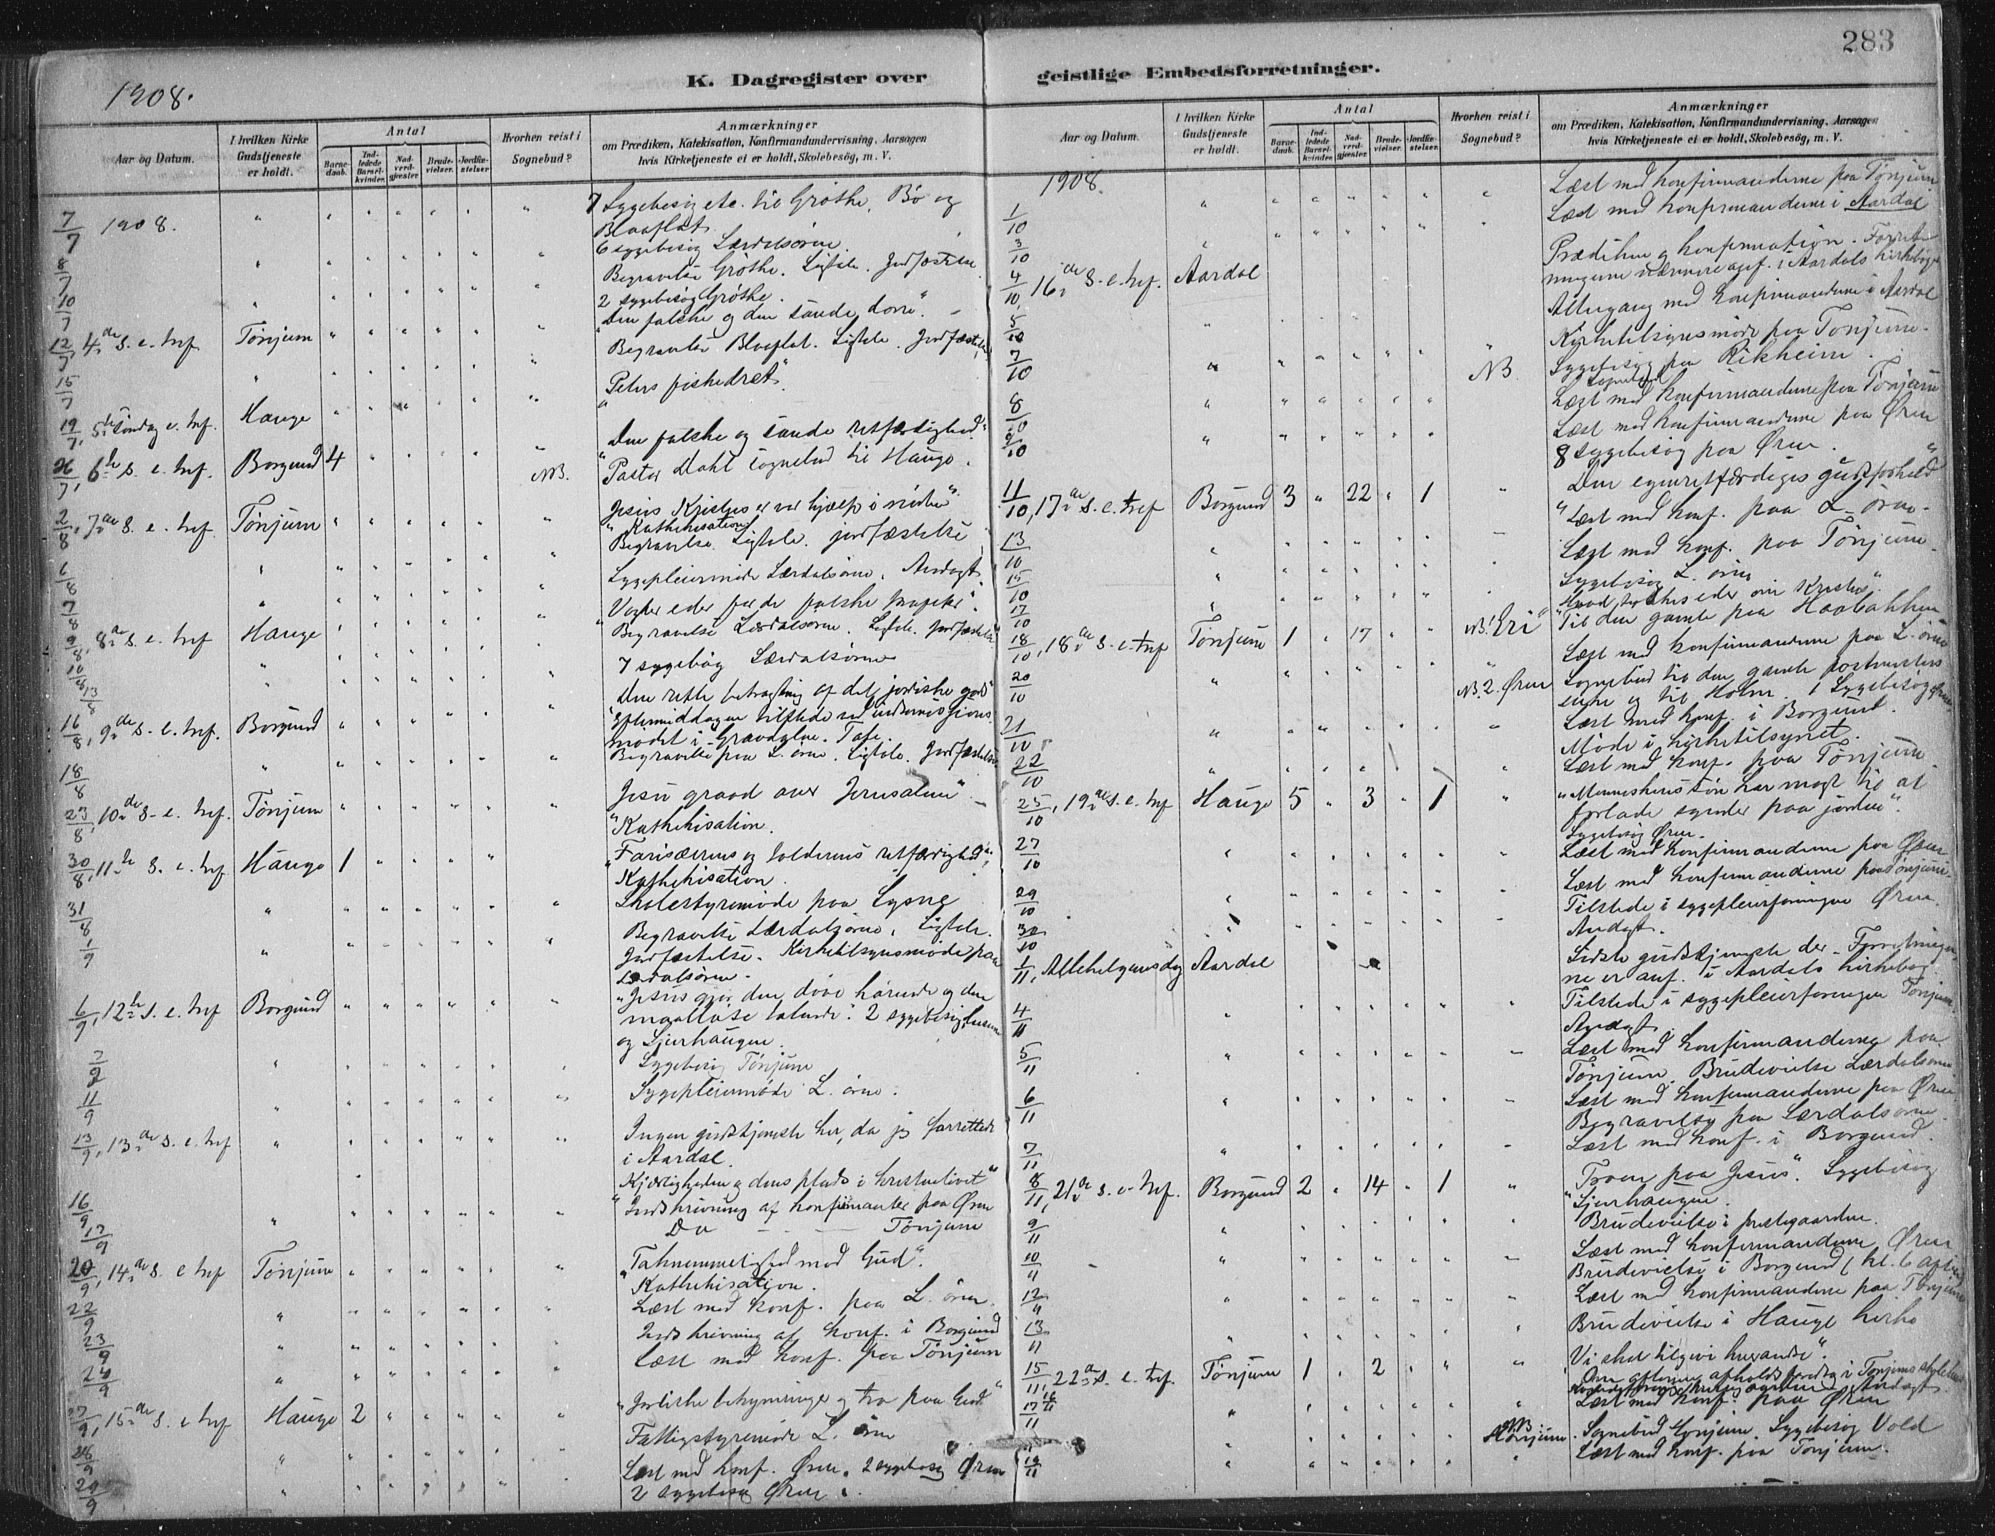 283
K. Dagregister over geistlige Embedsforretninger.
1908.
Aar og Datum.
I hvilken Kirke Gudstjeneste er holdt.
Antal
Barnedaab.
Indledede Barselkvinder.
Nadverdgjester
Brudevielser.
Jordfæstelser
Hvorhen reist i Sognebud?
Anmærkninger
om Prædiken, Katekisation, Konfirmandundervisning, Aarsagen
hvis Kirketjeneste ei er holdt, Skolebesøg, m. V.
7/7 1908. 7 Sygebesøg etc. til Grøthe, Bø og
Blaaflat
8/7 6 sygebesøg Lærdalsøren.
10/7 Begravelse Grøthe. Ligtale. Jordfæstelse.
2 sygebesøg Grøthe.
12/7, 4de S. e. tref Tønjum "Den falske og den sande dom".
15/7 Begravelse Blaaflat. Ligtale. Jordfæstelse
19/7, 5te søndag e. tref. Hauge "Peters fiskedræt".
26/7, 6te s. e. tref. Borgund 4 "Den falske og sande retfærdighed"
NB. Pastor Dahl sognebud til Hauge.
2/8, 7de S. e. tref Tønjum "Jesus Kristus er vor hjælp i nøden".
Kathekisation
6/8 Begravelse. Ligtale. jordfæstelse
7/8 Sygepleiermøde Lærdalsøren. Andagt.
9/8, 8de s. e. tref Hauge "Vogter eder for de falske profeter".
10/8 Begravelse Lærdalsøren. Ligtale. Jordfæstelse
13/8 7 sygebøg Lærdalsøren
16/8, 9de s. e. tref. Borgund "Den rette betragtning af det jordiske gods"
Eftermiddagen tilstede ved indremissions
mødet i Gravdalen. Tale.
18/8 Begravelse paa L. øren. Ligtale. Jordfæstelse
23/8, 10de S. e. tref. Tønjum "Jesu graad over Jerusalem".
Kathekisation.
30/8, 11te S. e. tref Hauge 1 "Farisæerens og tolderens retfærdighed".
Kathekisation.
31/8 Skolestyremøde paa Lysne
1/9 Begravelse Lærdalsøren. Ligtale.
Jordfæstelse. Kirketilsynsmøde paa
Lærdalsøren.
6/9, 12te s. e. tref Borgund "Jesus gjør den døve hørende og den
maalløse talende". 2 sygebesøg
og Sjurhaugen.
7/9 Sygebesøg Tønjum
11/9 Sygepleiermøde L. øren.
13/9, 13de s. e. tref Ingen gudstjeneste her, da jeg forrettede
i Aardal.
"Kjærligheden og dens plads i kristenlivet"
16/9 Indskrivning af konfirmanter paa Øren
17/9 Do — — Tønjum
20/9, 14de s. e. tref Tønjum "Taknemmelighed mod Gud".
Kathekisation.
22/9 Læst med konf. paa L. øren.
23/9 Indskrivning af konf. i Borgund
24/9 Læst med konf. paa Tønjum
27/9, 15de s. e. tref Hauge 2 "Jordiske bekymringer og tro paa Gud"
Fattigstyremøde L. øren
26/9 Læst med konf. Øren. 2 sygebesøg Øren
29/9 2 sygebesøg Øren.
Aar og Datum.
I hvilken Kirke Gudstjeneste er holdt.
Antal
Barnedaab.
Indledede Barselkvinder.
Nadverdgjester
Brudevielser.
Jordfæstelser
Hvorhen reist i Sognebud?
Anmærkninger
om Prædiken, Katekisation, Konfirmandundervisning, Aarsagen
hvis Kirketjeneste ei er holdt, Skolebesøg, m. V.
1908.
1/10 Læst med konfirmanderne paa Tønjum
3/10 Læst med konfirmanderne i Aardal
4/10, 16de S. e. tref. Aardal Prædiken og konfirmation. Forret
ningerne nærmere opf. i Aardals kirkebog
5/10 Altergang med konfirmanderne i Aardal
7/10 Kirketilsynsmøde paa Tønjum.
NB. Sygebesøg paa Rikheim.
Sognebud
8/10 Læst med konfirmanderne paa Tønjum
9/10 Læst med konfirmanderne paa Øren
8 Sygebesøg paa Øren.
11/10, 17de s. e. tref Borgund 3 22 1 "Den egenretfærdiges gudsforhold"
13/10 Læst med konf. paa L. øren.
15/10 Læst med konf. paa Tønjum
17/10 Sygebesøg L. øren
18/10, 18de s. e. tref Tønjum 1 17 NB. Eri "Hvad tykkes eder om Kristus".
Til den gamle paa Haabakken
20/10 Læst med konfirmanderne paa L. øren
21/10 NB. 2. Øren Sognebud til den gamle postmesters
enke og til Holm. 1 Sygebesøg Øren
22/10 Læst med konf. i Borgund.
Møde i kirketilsynet.
Læst med konf. paa Tønjum.
25/10, 19de s. e. tref Hauge 5 3 1 "Menneskens søn har magt til at
forlade synder paa jorden".
Sygebesøg Øren.
27/10 Læst med konfirmanderne paa Øren
29/10 Læst med konfirmanderne paa Tønjum
30/10 Tilstede i sygepleierforeningen Øren.
Andagt.
1/11, Allehelgensdag Aardal Sidste gudstjeneste der. Forretninger
ne er anf. i Aardals kirkebog.
4/11 Tilstede i sygepleierforeningen Tønjum.
Andagt.
5/11 Læst med konfirmanderne paa
Tønjum. Brudevielse Lærdalsøren
6/11 Læst med konfirmanderne paa Øren
Begravelse paa Lærdalsøren.
7/11 Læst med konf. i Borgund.
8/11, 21de s. e. tref. Borgund 2 14 1 "Troen paa Jesus". Sygebesøg
Sjurhaugen.
9/11 Brudevielse i prestegaarden.
10/11 Læst med konfirmanderne Øren
Brudevielse i Borgund (kl. 6 aften)
12/11 Læst med konfirmanderne paa Tønjum
13/11 Brudevielse i Hauge kirke
15/11, 22de s. e. tref. Tønjum 1 2 "Vi skal tilgive hverandre".
Om aftenen afholdt foredrag i Tønjums skolehus
16/11 Andagt.
17/11 Læst med konf. paa Øren
NB Tønjum. Sognebud Tønjum. Sygebesøg Vold
19/11 Læst med konf. paa Tønjum.